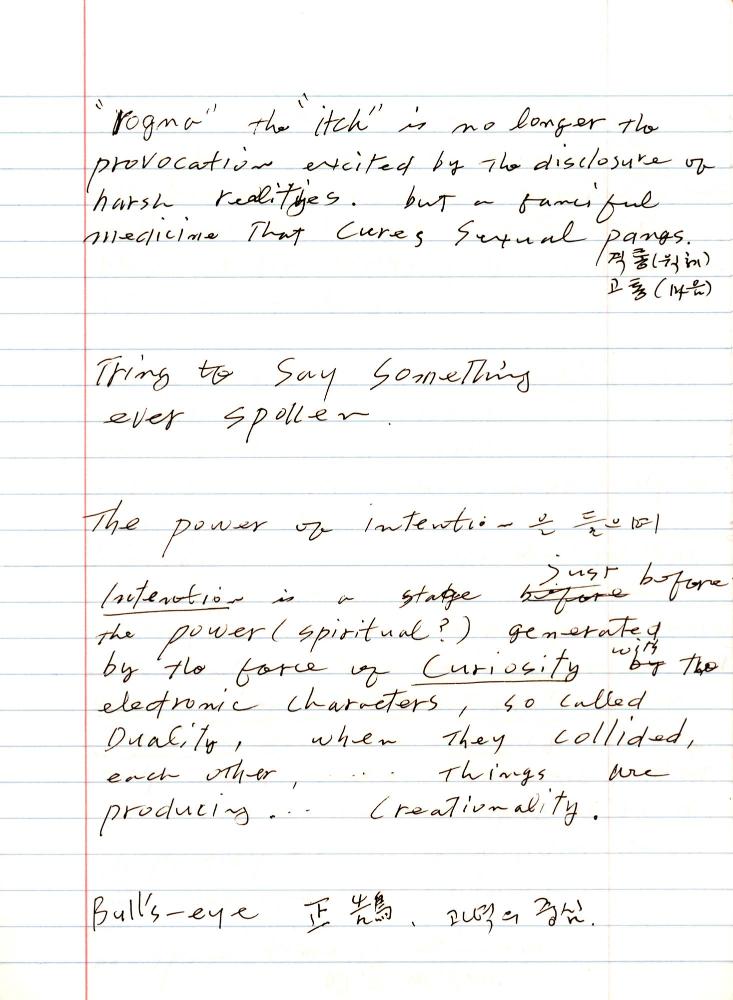 "rogna" the "itch" is no longer the
provocation excited by the disclosure of
harsh realities. but a fanciful
medicine That Cures Sexual pangs.
격통(육체)
고통(마음)
Tring to Say Something
ever spollen.
The power of intention을 들으며
just before
Intention is a stage before
the power (spiritual?) generated
with
by the force of Curiosity by the
electronic characters, so called
Duality, when They collided,
each other, .... Things are
producing... Creationality.
Bull's-eye 正鵠. 과녁의 중심.